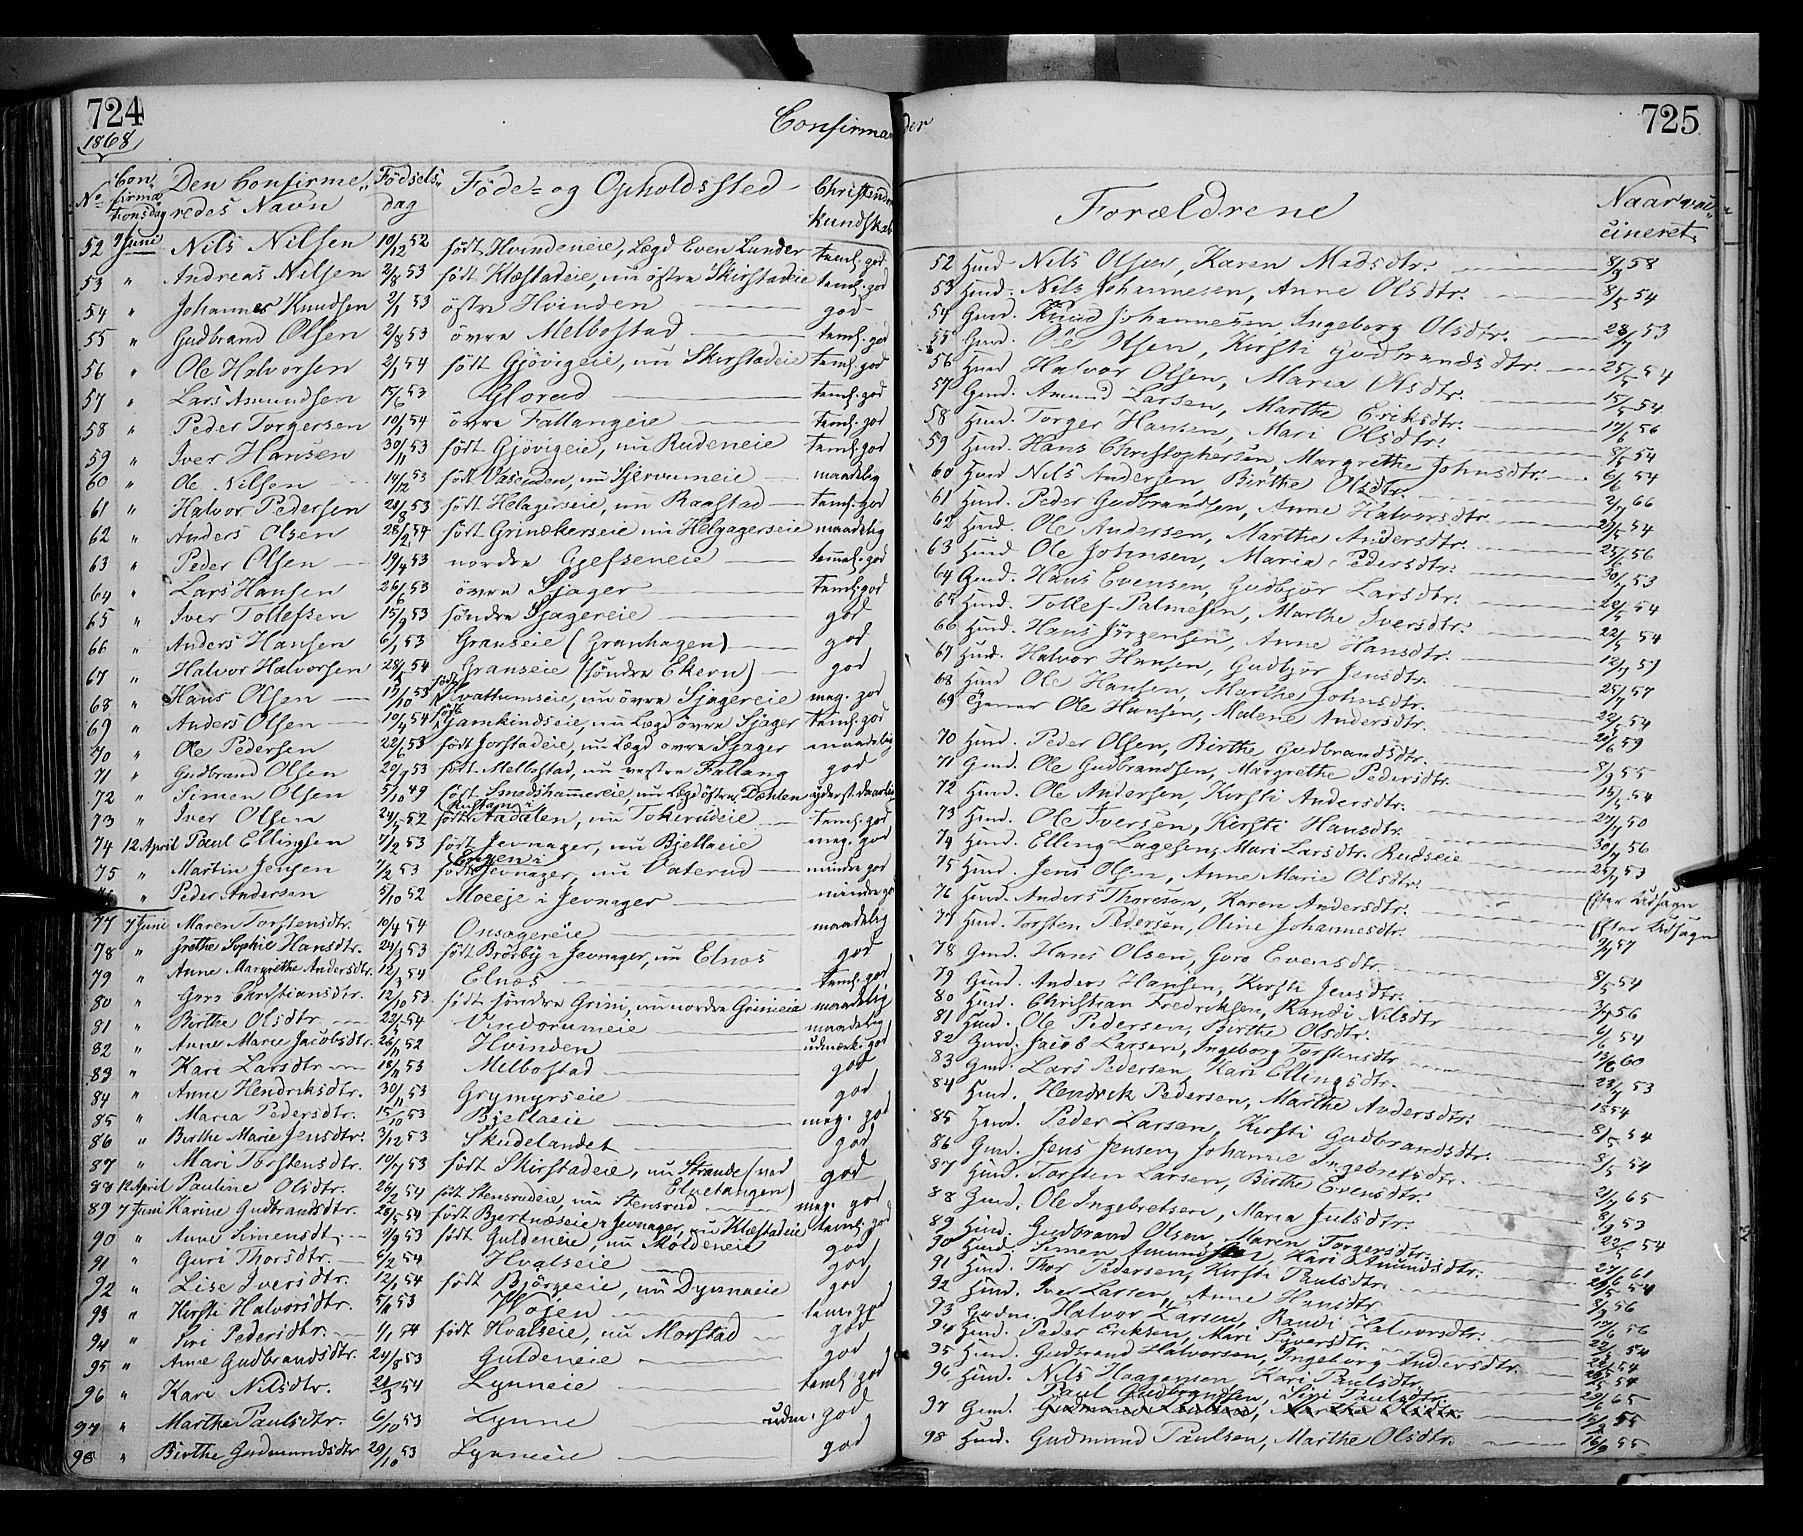 724
1868
Confirmander
725
No. Confirmationsdag Den Confirmeredes Navn Fødselsdag Føde- og Opholdssted Christendomskundskab
Forældrene Naar vaccineret
52 7 Juni Nils Nilsen 10/12 52 født Hvindeneie, Lægd Even Lunder temh. god
53 " Andreas Nilsen 2/8 53 født Klæstadeie, nu østre Skirstadeie temh. god
54 " Johannes Knudsen 2/1 53 østre Hvinden god
55 " Gudbrand Olsen 2/8 53 øvre Melbostad temh. god
56 " Ole Halvorsen 2/1 54 født Gjøvigeie, nu Skirstadeie temh. god
57 " Lars Amundsen 15/6 53 Glorud temh. god
58 " Peder Torgersen 10/1 54 øvre Fallangeie temh. god
59 " Iver Hansen 30/11 53 født Gjøvigeie, nu Rudeneie temh. god
60 " Ole Nilsen 14/12 53 født Vasenden, nu maadelig
61 " Halvor Pedersen 28/8 53 født Helagerseie, nu Raastad temh. god
62 " Anders Olsen 28/2 54 født Grinækerseie nu Helgagerseie maadelig
63 " Peder Olsen 19/4 53 nordre Gjefseneie temh. god
64 " Lars Hansen 26/6 53 øvre Sjager temh. god
65 " Iver Tollefsen 15/9 53 søndre Sjagereie god
66 " Anders Hansen 6/1 53 Granseie (Granhagen) god
67 " Halvor Halvorsen 28/5 54 Granseie (søndre Ekern) god
68 " Hans Olsen 15/10 53 født Svathumseie, nu øvre Sjagereie meg. god
69 " Anders Olsen 10/4 54 født Gamkindseie, nu Lægd øvre Sjager temh. god
70 " Ole Pedersen 22/6 53 født Jorstadeie, nu Lægd øvre Sjager maadelig
71 " Gudbrand Olsen 29/9 53 født Melbostad, nu vestre Fallang god
72 " Simen Olsen 5/10 49 født Smedshammereie, nu Lægd østre Dæhlen yderst daarlig
73 " Iver Olsen 24/7 52 født Aadalen, nu Tokerudeie temh. god
74 12 April Paul Ellingsen 7/2 53 født Jevnager, nu Bjellaeie meg. god
75 " Martin Jensen 7/2 53 født Engen i Jevnager, nu Vaterud mindre god
" Peder Andersen 5/10 52 Moeeje i Jevnager mindre god
77 7 Juni Maren Torstensdtr. 10/4 54 Onsagereie maadelig
78 " Grethe Sophie Hansdtr. 29/9 53 født Brørby i Jevnager, nu Elnæs god
79 " Anne Margrethe Andersdtr. 12/3 54 Elnæs temh. god
80 " Goro Christiansdtr. 12/10 53 født søndre Grini, nu nordre Grinieie maadelig
81 " Birthe Olsdtr. 22/5 54 Vindorumeie maadelig
82 " Anne Marie Jacobsdtr. 26/11 52 Hvinden udmærk. god
83 " Kari Larsdtr. 18/11 53 Melbostad god
84 " Anne Hendriksdtr. 30/11 53 Grymyrseie god
85 " Maria Pedersdtr. 15/10 53 Bjellaeie meg. god
86 " Birthe Marie Jensdtr. 3/12 53 Skudelandet god
87 " Mari Torstensdtr. 10/7 53 født Skirstadeie, nu Strande (ved Elvetangen) god
88 12 April Pauline Olsdtr. 26/2 54 født Stensrudeie, nu Stensrud meg. god
89 7 Juni Karine Gudbrandsdtr. 28/5 54 født Bjertnæseie i Jevnager, nu Klæstadeie temh. god
90 " Anne Simensdt. 9/9 53 født Guldeneie, nu Moldeneie god
91 " Guri Thorsdtr. 6/2 54 Hvalseie god
92 " Lise Iversdtr. 12/1 54 født Bjørgeeie, nu Dynnaeie god
93 " Kirsti Halvorsdtr. 5/11 53 Wøien temh. god
94 " Siri Pedersdtr. 1/1 54 født Hvalseie, nu Morstad god
95 " Anne Gudbrandsdtr. 24/8 53 Guldeneie god
96 " Kari Nilsdtr. 21/3 54 Lynneie temh. god
97 " Marthe Paulsdtr. 6/10 53 Lynne udm. god
98 " Birthe Gudmundsdtr 29/10 53 Lynneie god
52 Husd. Nils Olsen, Karen Madsdtr. 8/9 58
53 Husd. Nils Johannesen, Anne Olsdtr. 8/5 54
54 Gmd. Knud Johannesen, Ingeborg Olsdtr. 28/7 53
55 Gmd. Ole Olsen, Kirsti Gudbrandsdtr. 25/5 54
56 Husd. Halvor Olsen, Maria Olsdtr. 15/5 54
57 Gmd. Amund Larsen, Marthe Eriksdtr. 17/6 56
58 Husd. Torger Hansen, Mari Olsdtr. 8/5 54
59 Husd. Hans Christophersen, Margrethe Johnsdtr. 6/6 54
60 Husd. Nils Andersen, Birthe Olsdtr. 2/7 66
61 Husd. Peder Gudbrandsen, Anne Halvorsdtr. 29/5 54
62 Husd. Ole Andersen, Marthe Andersdtr. 25/6 56
63 Husd. Ole Johnsen, Maria Pedersdtr. 30/7 53
64 Gmd. Hans Evensen, Gudbjør Larsdtr. 29/5 54
65 Husd. Tollef Palmesen, Marthe Iversdtr. 22/5 54
66 Husd. Hans Jørgensen, Anne Hansdtr. 12/9 57
67 Husd. Halvor Hansen, Gudbjør Jensdtr. 25/7 57
68 Husd. Ole Hansen, Marthe Johnsdtr. 22/5 54
69 Tjener Ole Hansen, Malene Andersdtr. 20/6 59
70 Husd. Peder Olsen, Birthe Gudbrandsdtr. 8/9 55
71 Gmd. Ole Gudbrandsen, Margrethe Pedersdtr. 15/5 54
72 Husd. Ole Andersen, Kirsti Andersdtr. 27/7 50
73 Husd. Ole Iversen, Kirsti Hansdtr. 30/7 56
74 Husd. Elling Lagesen, Mari Larsdtr. Rudseie 25/7 53
75 Husd. Jens Olsen, Anne Marie Olsdtr. Efter Udsagn
76 Husd. Anders Thoresen, Karen Andersdtr. Efter Udsagn
77 Husd. Torsten Pedersen, Oline Johannesdtr. 9/7 57
78 Gmd. Hans Olsen, Goro Evensdtr. 8/5 54
79 Gmd. Anders Hansen, Kirsti Jensdtr. 3/7 56
80 Husd. Christian Fredriksen, Randi Nilsdtr 6/6 54
81 Husd. Ole Pedersen, Birthe Olsdtr. 13/6 60
82 Gmd. Jacob Larsen, Ingeborg Torstensdtr. 28/7 53
83 Gmd. Lars Pedersen, Kari Ellingsdtr. 1854
84 Husd. Hendrik Pedersen, Marthe Andersdtr. 8/5 54
85 Husd. Peder Larsen, Kirsti Gudbrandsdtr. 8/5 54
86 Gmd. Jens Jensen, Johanne Ingebretsdtr. 21/7 65
87 Husd. Torsten Larsen, Birthe Evensdtr. 8/9 53
88 Gmd. Ole Ingebretsen, Maria Julsdtr. 22/5 54
89 Husd. Gudbrand Olsen, Maren Torgersdtr. 27/6 61
90 Husd. Simen Amundsen, Kari Amundsdtr. 29/5 54
91 Husd. Thor Pedersen, Kirsti Paulsdtr. 8/9 56
92 Husd. Iver Larsen, Anne Hansdtr 10/6 56
93 Gudm. Halvor Larsen, Randi Halvorsdtr. 22/5 54
94 Husd. Peder Eriksen, Mari Syversdtr. 28/5 54
95 Husd. Gudbrand Halvorsen, Ingeborg Andersdtr. 54
96 Husd. Nils Haagensen, Kari Paulsdtr. 29/6 65
97 Gmd. Paul Gudbrandsen, Siri Paulsdtr. 16/9 55
98 Husd. Gudmund Paulsen, Marthe Olsdtr. 16/9 55